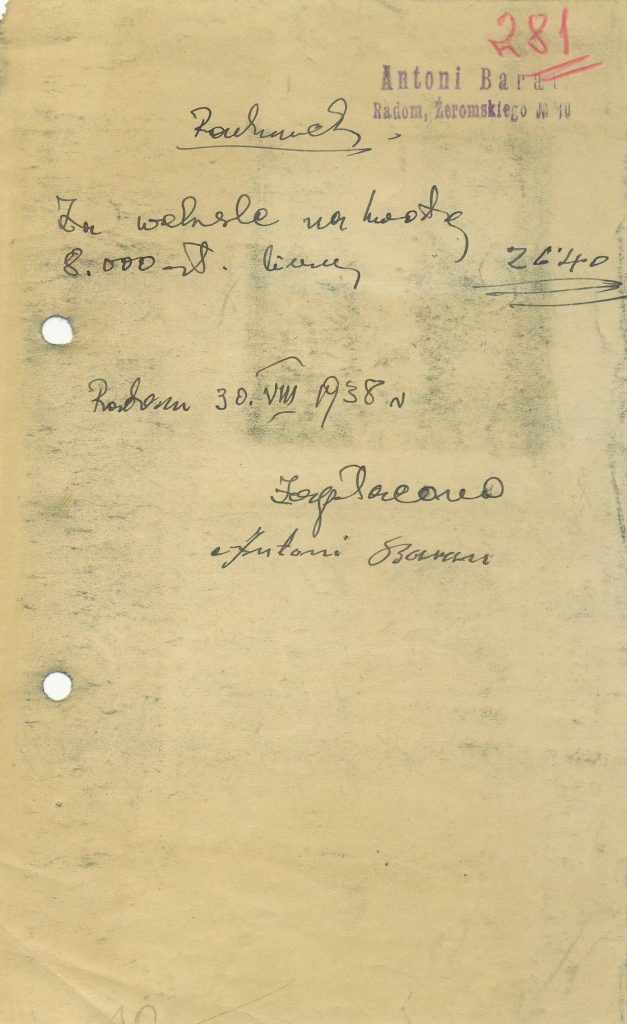 281
Antoni Bara
Radom, Żeromskiego № 10
Rachunek
Za weksle na kwotę
8.000 zł. liczę 26.40
Radom 30. VIII 1938 r
Zapłacono
Antoni Baran